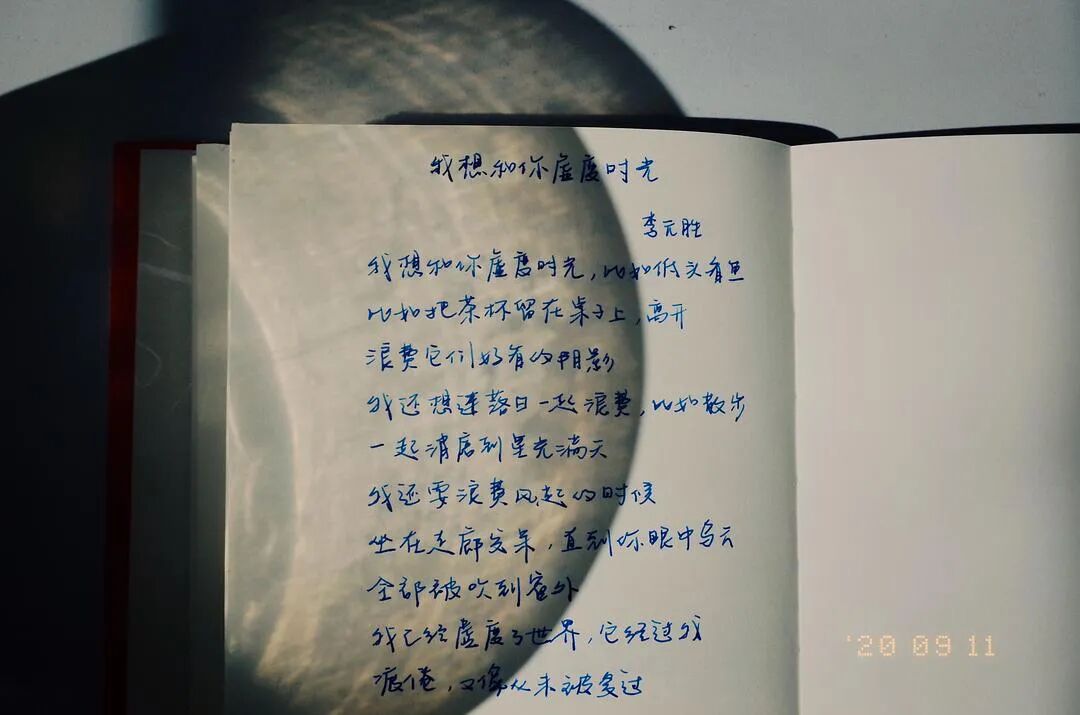 我想和你虚度时光
李元胜
我想和你虚度时光，比如低头看鱼
比如把茶杯留在桌子上，离开
浪费它们好看的阴影
我还想连落日一起浪费，比如散步
一起消磨到星光满天
我还要浪费风起的时候
坐在走廊发呆，直到你眼中乌云
全部被吹到窗外
我已经虚度了世界，它经过我
疲倦，又像从未被爱过
'20 09 11